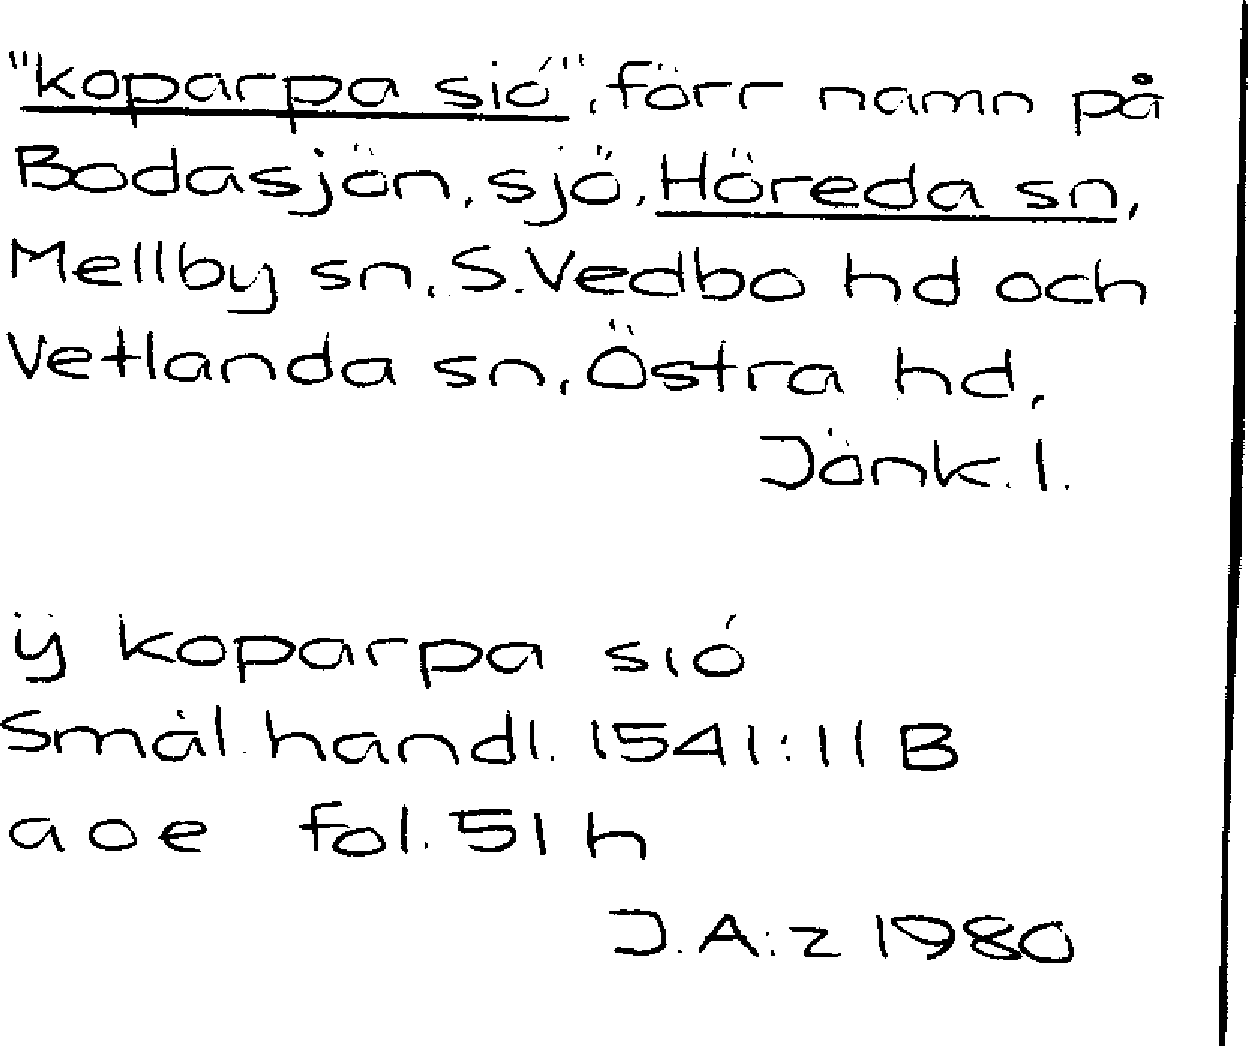 "koparpa sió", förr namn på
Bodasjön, sjö, Höreda sn,
Mellby sn, S. Vedbo hd och
Vetlanda sn, Östra hd,
Jönk. l.
ÿ koparpa sió
Smål. handl. 1541:11 B
a o e fol. 51 h
J.A:z 1980